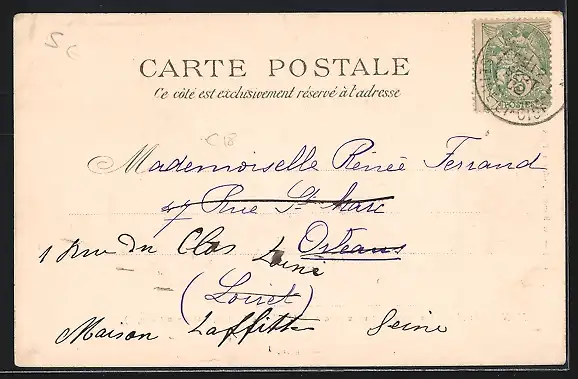 5c
CARTE POSTALE
Ce côté est exclusivement réservé à l'adresse
C18
Mademoiselle Renée Ferrand
47 Rue St Marc
1 Rue du Clos Orléans
(Loiret)
Maison Laffitte Seine
POSTES